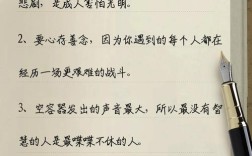 悲剧，是成人害怕光明。
2、要心存善念，因为你遇到的每个人都在
经历一场更艰难的战斗。
3、空容器发出的声音最大，所以最没有智
慧的人是最喋喋不休的人。